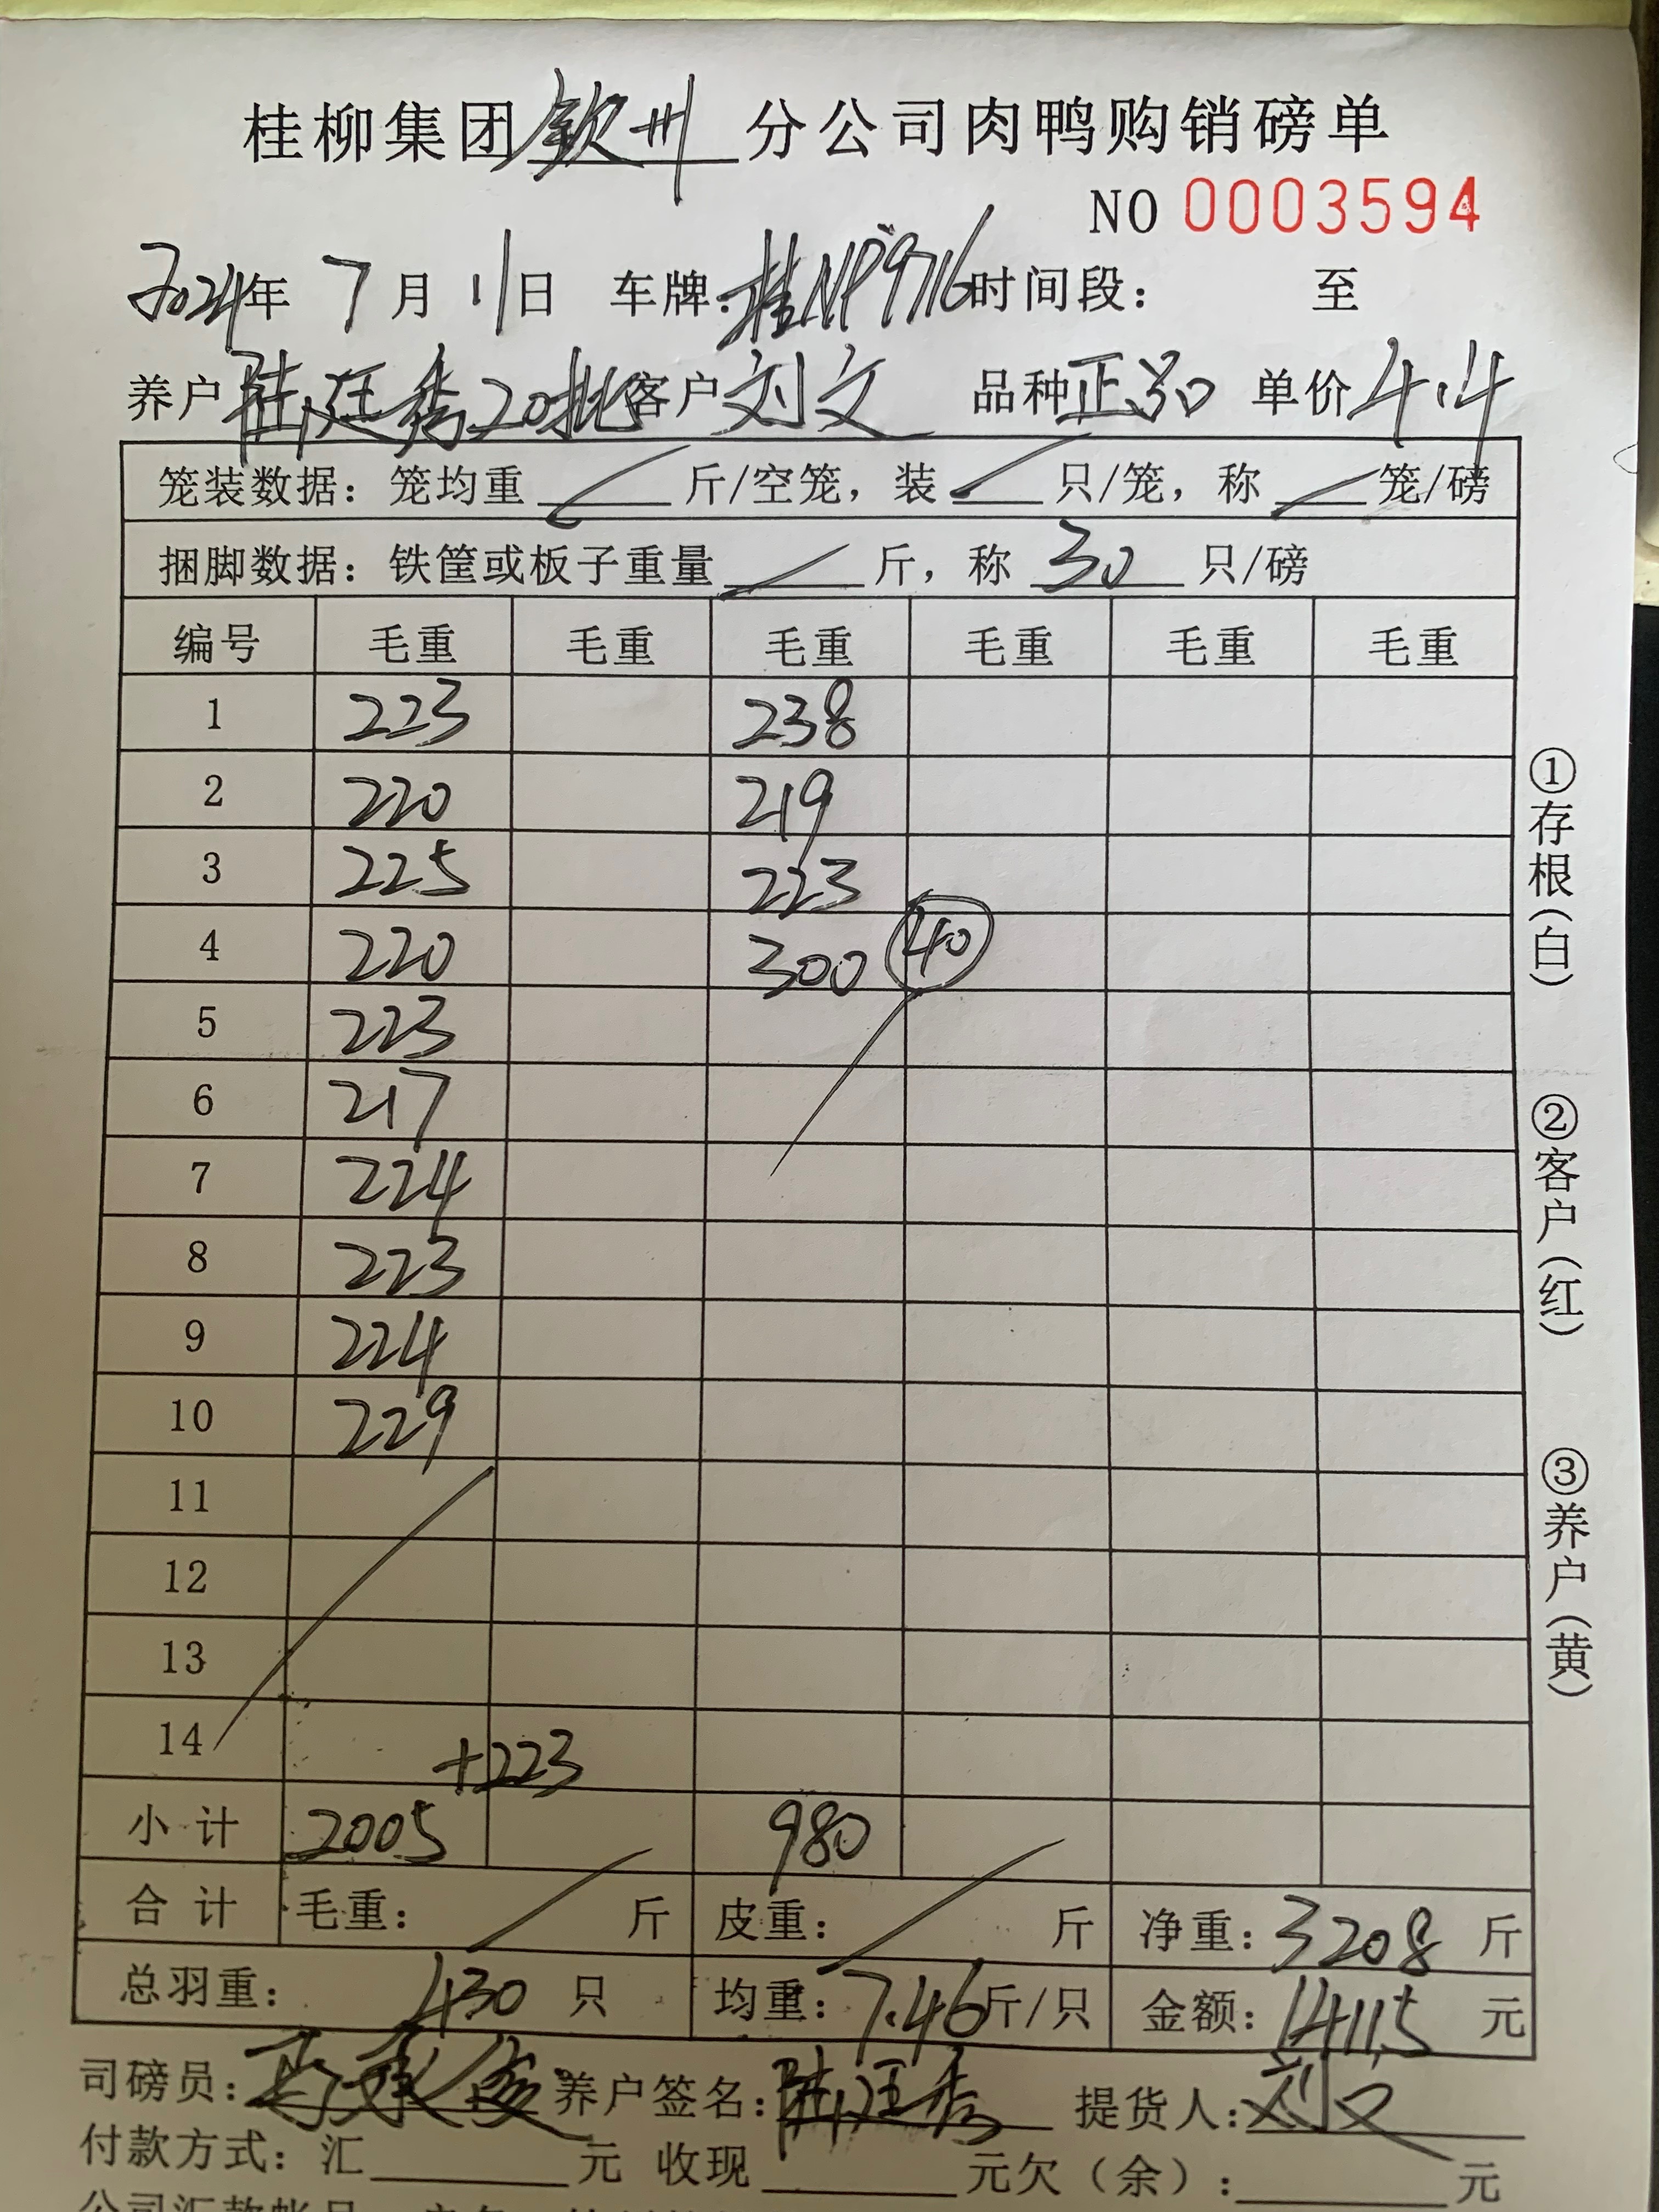 桂柳集团钦州分公司肉鸭购销磅单
NO 0003594
2024年 7月 11日 车牌:桂NP9716 时间段: 至
养户 陆廷秀20批 客户 刘文 品种 正30 单价 4.4
笼装数据: 笼均重 / 斤/空笼, 装 / 只/笼, 称 / 笼/磅
捆脚数据: 铁筐或板子重量 / 斤, 称 30 只/磅
编号 毛重 毛重 毛重 毛重 毛重 毛重
1 223 238
2 220 219
3 225 223
4 220 300 40
5 223
6 217
7 224
8 223
9 224
10 229
11
12
13
14 +223
小计 2005 980
合计 毛重: / 斤 皮重: / 斤 净重: 3208 斤
总羽重: 430 只 均重: 7.46 斤/只 金额: 14115 元
司磅员: 养户签名: 陆廷秀 提货人: 刘文
付款方式: 汇 元 收现 元欠(余): 元
①存根(白)
②客户(红)
③养户(黄)